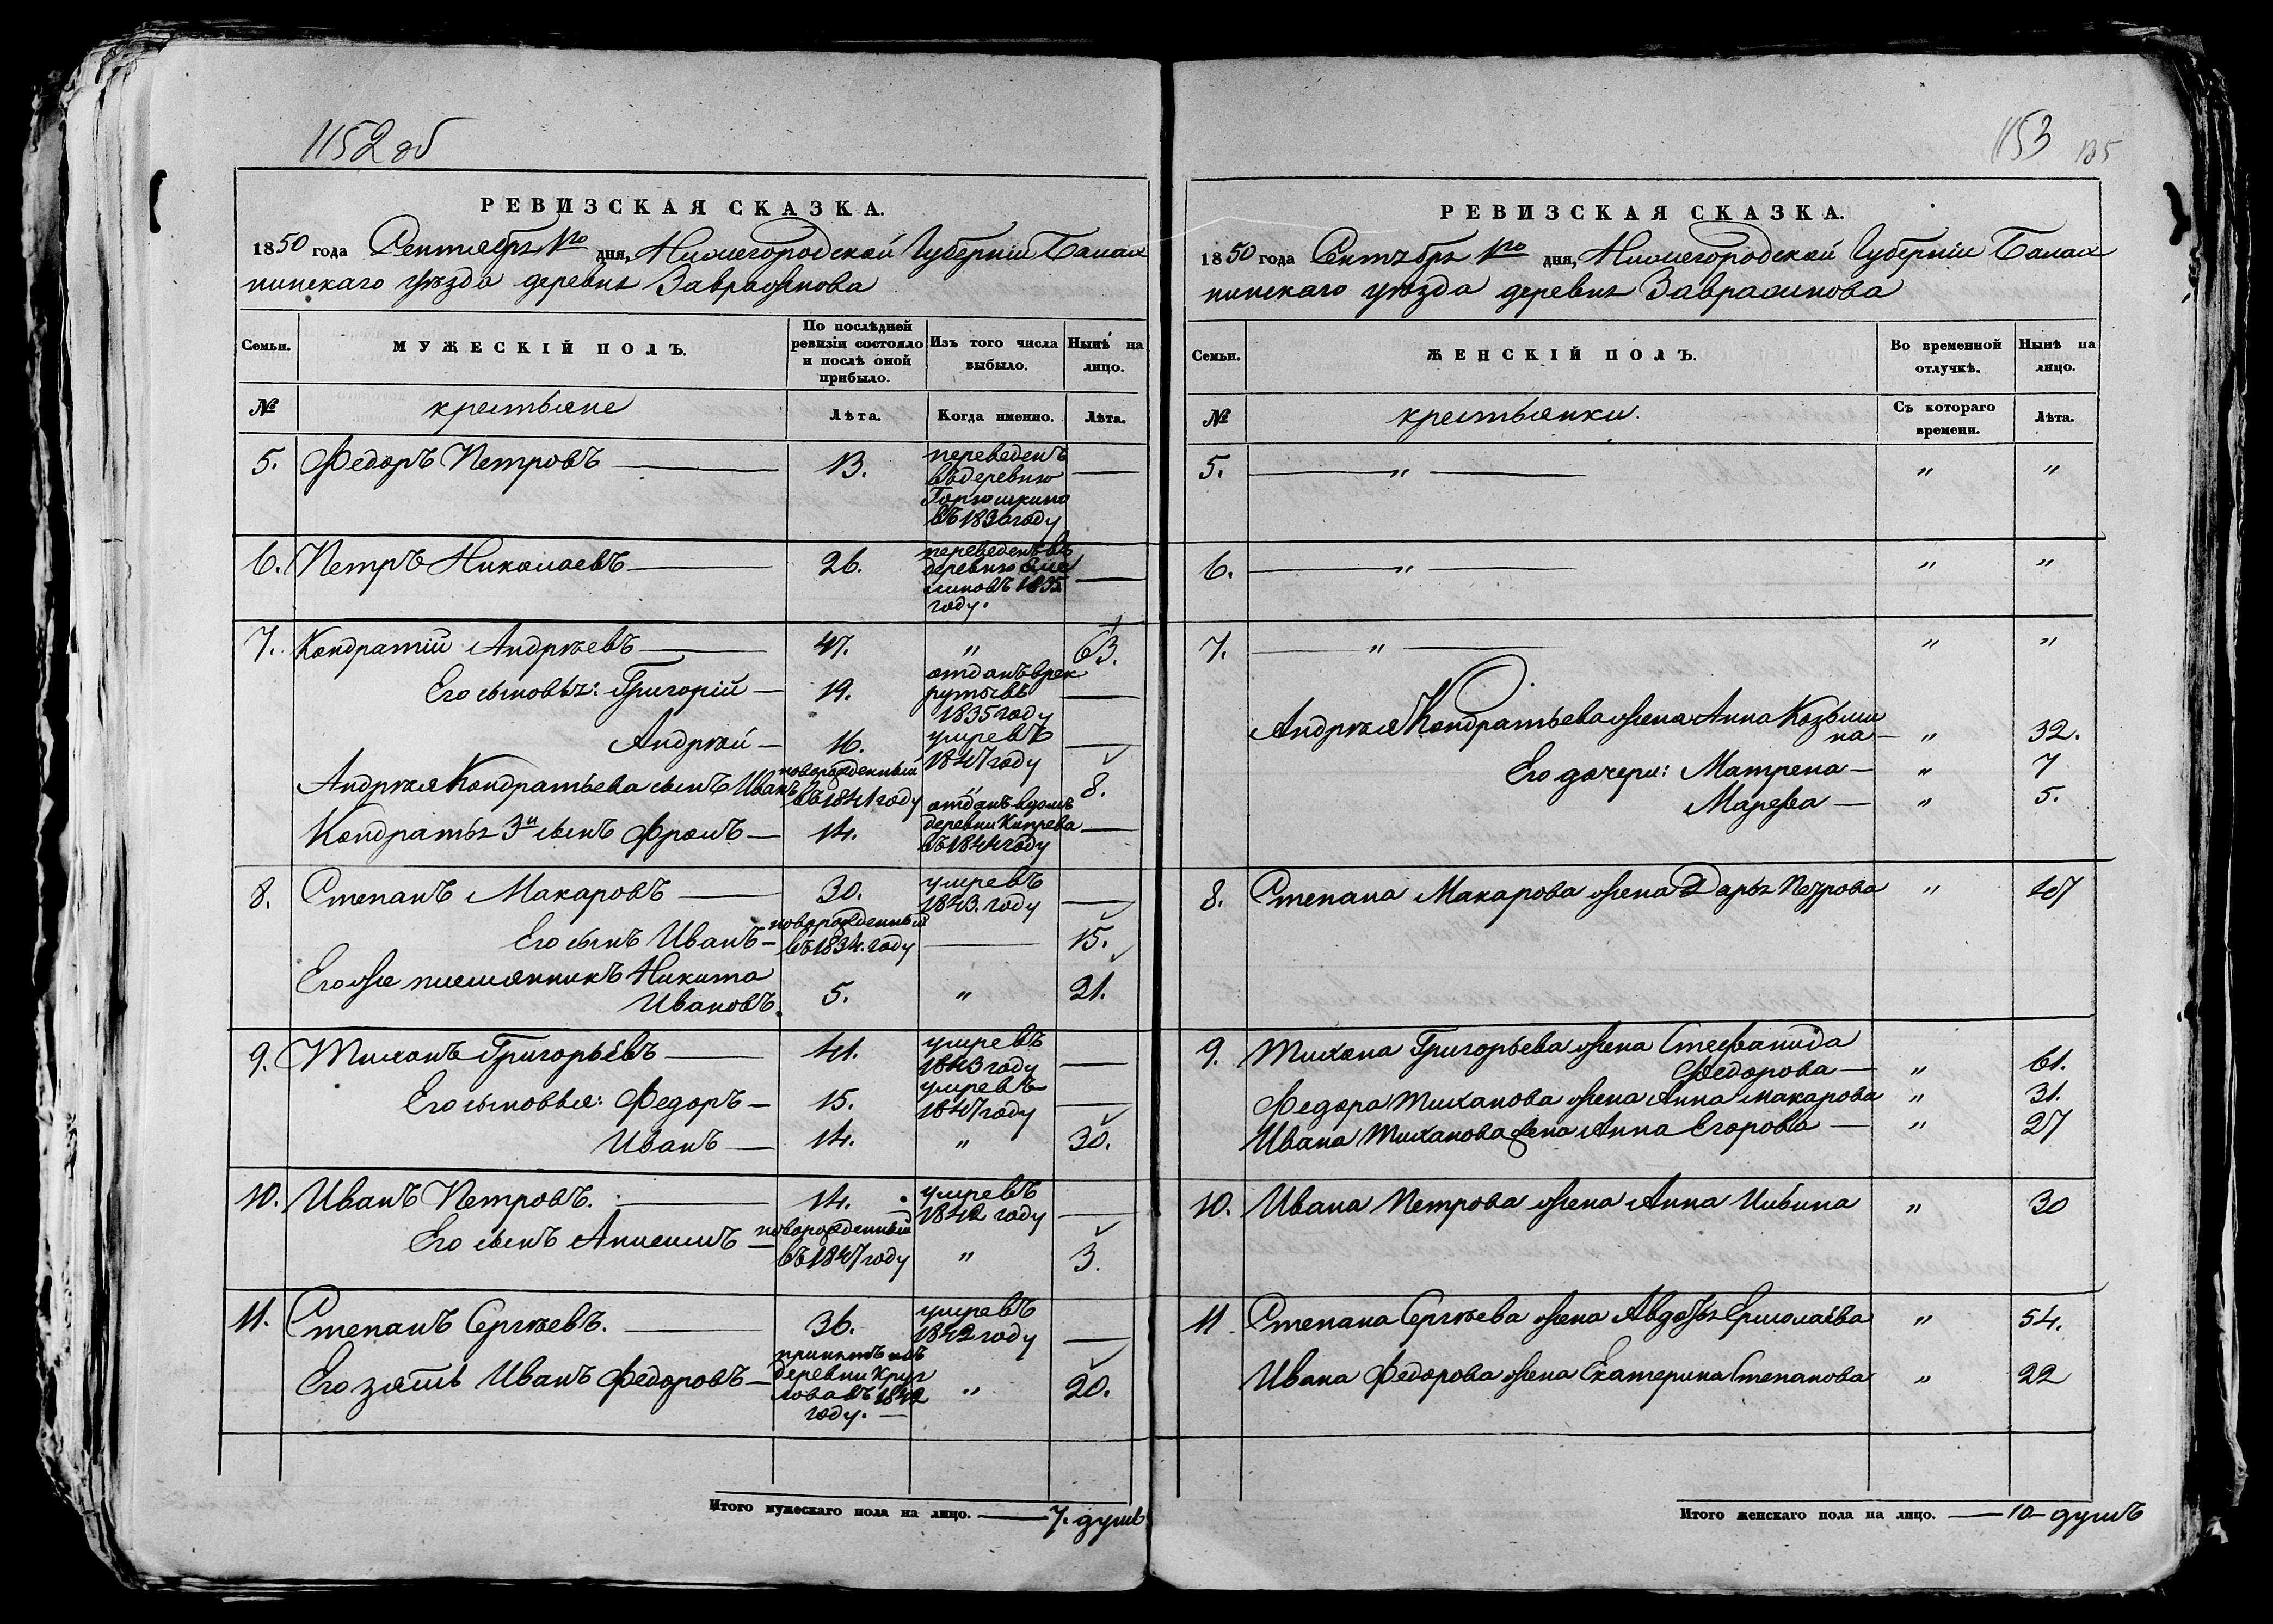 1152 об
РЕВИЗСКАЯ СКАЗКА.
1850 года Сентября 1го дня, Нижегородской Губерніи Балах
нинскаго уѣзда деревни Завражнова
Семьи.
МУЖЕСКІЙ ПОЛЪ.
По послѣдней
ревизіи состояло
и послѣ оной
прибыло.
Изъ того числа
выбыло.
Нынѣ на
лицо.
№
крестьяне
Лѣта.
Когда именно.
Лѣта.
5. Федоръ Петровъ — 13. переведенъ
въ деревню
въ 1836 году —
6. Петръ Николаевъ — 26. переведенъ въ
деревню
1835
году. —
7. Кондратій Андрѣевъ — 47. " 63.
Его сыновья: Григорій — 19. отданъ в рек
руты въ
1835 году —
Андрѣй — 16. умре въ
1847 году —
Андрѣя Кондратьева сынъ Иванъ новорожденный
въ 1841 году " 8.
Кондратья 3й сынъ Фролъ — 14. отданъ в домъ
деревни Кипрева
въ 1844 году —
8. Степанъ Макаровъ — 30. умре въ
1843. году —
Его сынъ Иванъ — новорожденный
въ 1834. году — 15.
Его же племянникъ Никита
Ивановъ. 5. " 21.
9. Тихонъ Григорьевъ — 41. умре въ
1843 году —
Его сыновья: Федоръ — 15. умре въ
1847 году —
Иванъ — 14. " 30.
10. Иванъ Петровъ. — 14. умре въ
1842 году —
Его сынъ Анисимъ — новорожденный
въ 1847 году " 3.
11. Степанъ Сергѣевъ. — 36. умре въ
1842 году —
Его зять Иванъ Федоровъ — принятъ изъ
деревни Круг
лова въ 1842
году. — " 20.
Итого мужескаго пола на лицо. — 7. душъ
1153 125
РЕВИЗСКАЯ СКАЗКА.
1850 года Сентября 1го дня, Нижегородской Губерніи Балах
нинскаго уѣзда деревни Завражнова
Семьи.
ЖЕНСКІЙ ПОЛЪ.
Во временной
отлучкѣ.
Нынѣ на
лицо.
№
крестьянки.
Съ котораго
времени.
Лѣта.
5. — " — " "
6. — " — " "
7. — " — " "
Андрѣя Кондратьева жена Анна Козьми
на — " 32.
Его дочери: Матрена — " 7
Марефа — " 5.
8. Степана Макарова жена Дарья Петрова " 47
9. Тихона Григорьева жена Стефанида
Федорова — " 61.
Федора Тиханова жена Анна Макарова " 31.
Ивана Тиханова жена Анна Егорова — " 27
10. Ивана Петрова жена Анна Ильина " 30
11 Степана Сергѣева жена Авдотья Ермолаева " 54.
Ивана Федорова жена Екатерина Степанова " 22
Итого женскаго пола на лицо. — 10 — душъ